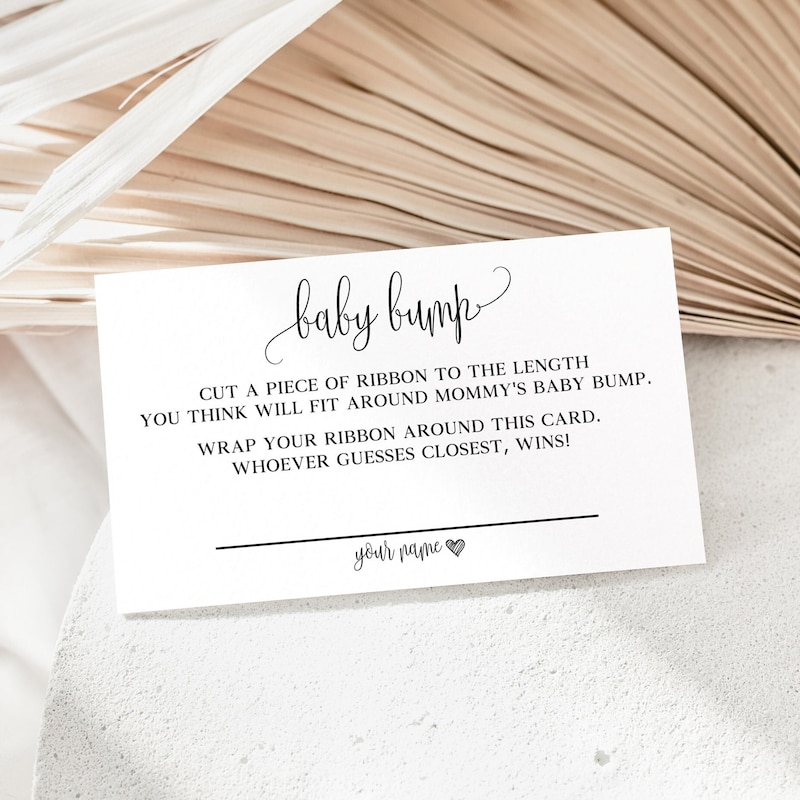 baby bump
CUT A PIECE OF RIBBON TO THE LENGTH
YOU THINK WILL FIT AROUND MOMMY'S BABY BUMP.
WRAP YOUR RIBBON AROUND THIS CARD.
WHOEVER GUESSES CLOSEST, WINS!
your name